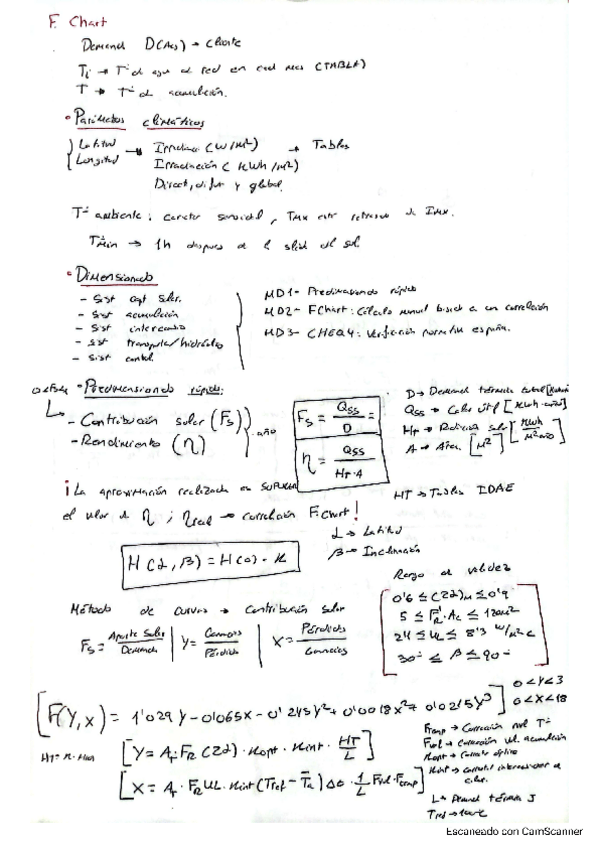 F. Chart
Demand D(Acs) → Cliente
Ti → Tª del agua de red en cada mes (TABLA)
T → Tª de acumulación.
• Parámetros climáticos
Latitud
Longitud
→ Irradiancia (W/m²) → Tablas
Irradiación (KWh/m²)
Direct, difusa y global.
Tª ambiente:
Tª min → 1h despues de la salida del sol
• Dimensionado
- Sist capt solar.
- Sist acumulación
- Sist intercambio
- Sist transporte/hidráulico
- Sist control.
MD1- Predimensionado rápido
MD2- FChart: Cálculo manual basado en una correlación
MD3- CHEQ4: Verificación normativa española.
• Predimensionado rápido:
- Contribución solar (Fs)
- Rendimiento (η)
año
Fs = Qss / D =
η = Qss / HT·A
D → Demanda térmica
Qss → Calor útil [KWh·año]
HT → Radiación solar [KWh/m²año]
A → Área [M²]
¡La aproximación realizada es SUPONER
el valor de η ; ηreal → correlación F.Chart!
HT → Tablas IDAE
H(2,β) = H(0)·K
L → Latitud
β → Inclinación
Rango de validez
0'6 ≤ (ζα)n ≤ 0'9
5 ≤ FR'·Ac ≤ 120m²
≤ UL ≤ 8'3 W/m²C
30º ≤ β ≤ 90º
Método de curvas → Contribución solar
Fs = Aporte Solar / Demanda | Y = Ganancias / Pérdidas | X = Pérdidas / Ganancias
F(Y,X) = 1'029 Y - 0'065X - 0'245Y² + 0'0018X² + 0'0215Y³
0<Y<3
0<X<18
[Y = Ar·FR(ζα)·Kopt·Kint·HT/L]
[X = Ar·FR UL·Kint(Tref - Ta)Δθ·1/L Fvol·Ftemp]
Ftemp → Corrección Tª
Fvol → Corrección vol acumulación
Kopt → óptico
Kint →
L → Demand térmica J